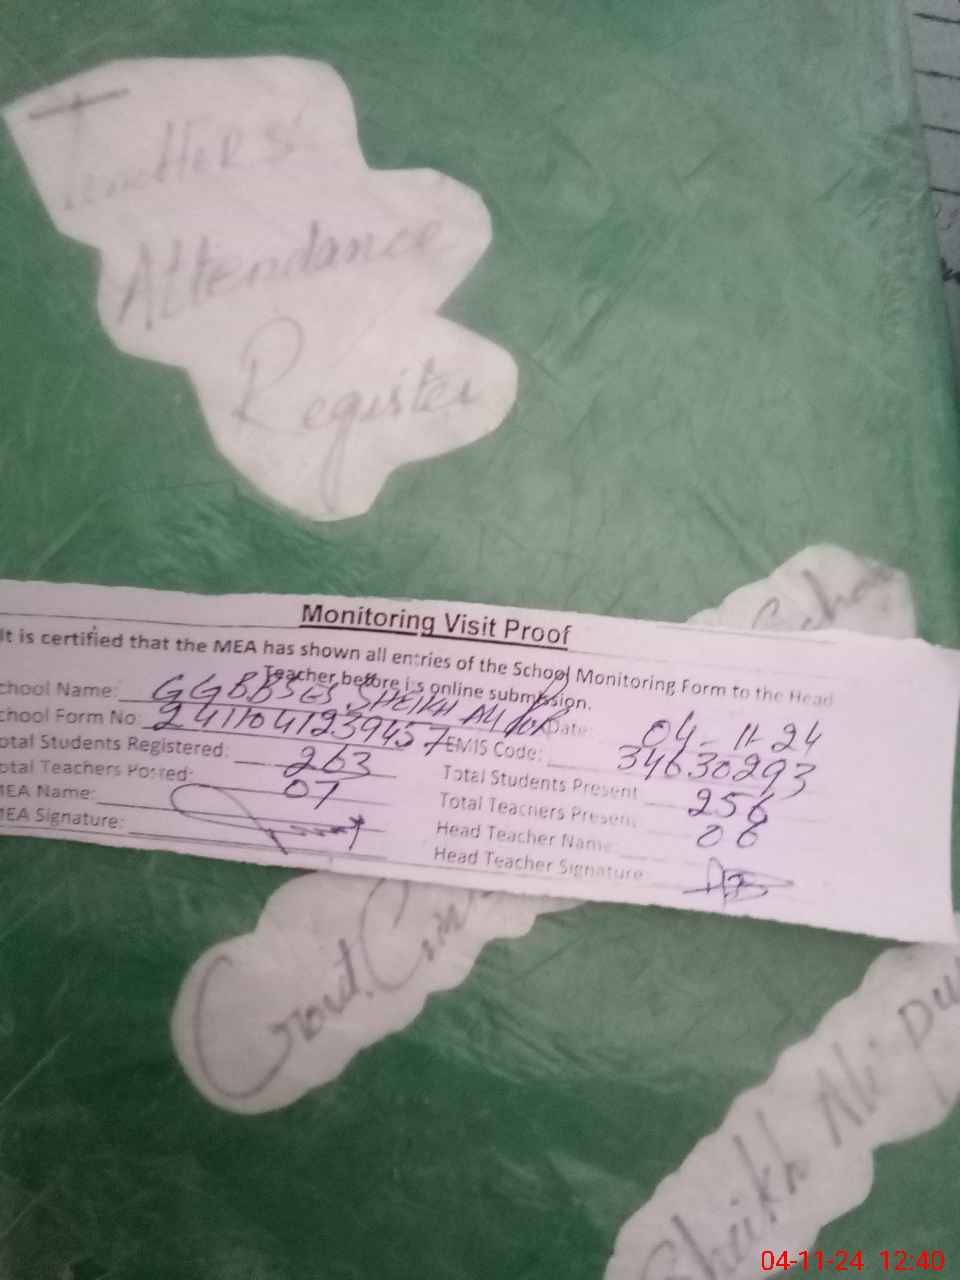 TeacHeRs'
Attendance
Register
Scho
Monitoring Visit Proof
It is certified that the MEA has shown all entries of the School Monitoring Form to the Head
Teacher before its online submission.
chool Name: SHEIKH ALI PUR Date: 04-11-24
chool Form No: 2411041239457 EMIS Code: 34630293
otal Students Registered: 263 Total Students Present 256
otal Teachers Posted: 07 Total Teachers Present 06
MEA Name: Head Teacher Name:
MEA Signature: Head Teacher Signature
Govt.
Sheikh Ali Pu
04-11-24 12:40